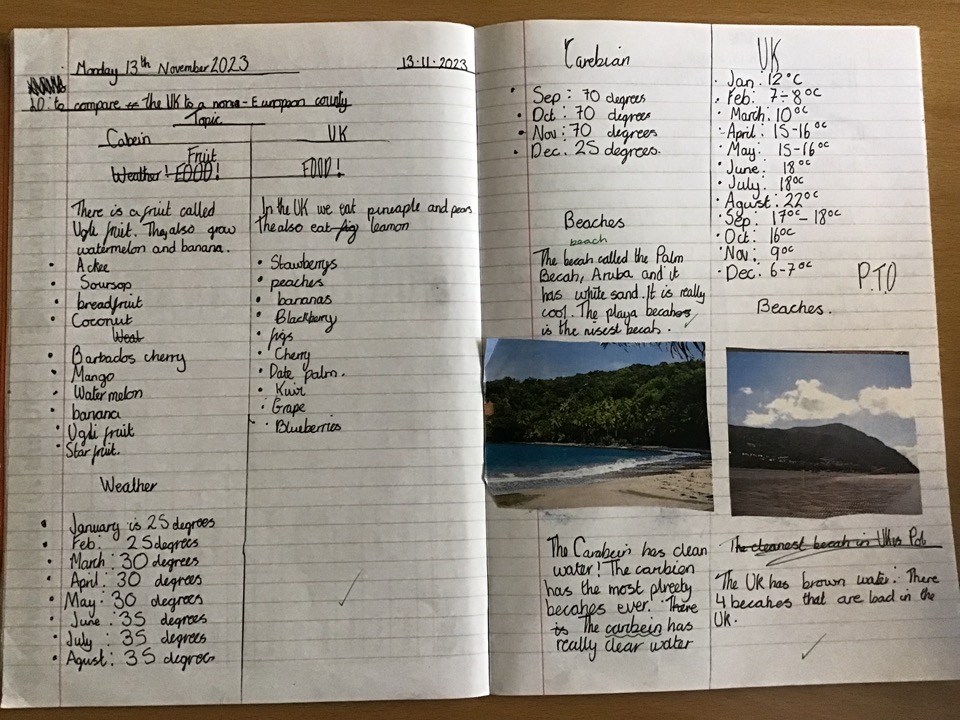 Monday 13th November 2023
13.11.2023
LO: to compare the UK to a none-European county
Topic
Cabein
UK
Fruit
Weather! FOOD!
FOOD!
There is a fruit called
Ugli fruit. They also grow
watermelon and banana.
Ackee
Soursop
breadfruit
Coconut
Weat
Barbados cherry
Mango
Water melon
banana
Ugli fruit
Star fruit.
In the UK we eat pineaple and pears
The also eat fig leamon
Stawberrys
peaches
bananas
Blackberry
figs
Cherry
Date palm.
Kuwi
Grape
Blueberries
Weather
January is 25 degrees
Feb: 25 degrees
March: 30 degrees
April: 30 degrees
May: 30 degrees
June: 35 degrees
July: 35 degrees
Agust: 35 degrees
Carebian
Sep: 70 degrees
Oct: 70 degrees
Nov: 70 degrees
Dec: 25 degrees.
Beaches
beach
The becah called the Palm
Becah, Aruba and it
has white sand. It is really
cool. The playa becahes
is the nisest becah.
The Carabein has clean
water! The caribien
has the most pireety
becahes ever. There
is The caribein has
really clear water
UK
Jan: 12°C
Feb: 7-8°C
March: 10°C
April: 15-16°C
May: 15-16°C
June: 18°C
July: 18°C
Agust: 22°C
Sep: 17°C-18°C
Oct: 16°C
Nov: 9°C
Dec: 6-7°C
P.T.O
Beaches.
The cleanest becah in UK is Pob
The UK has brown water. There
4 becahes that are load in the
UK.